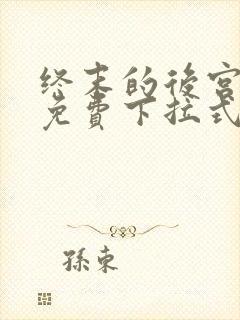 终末的後宫
免費下拉式
孫東